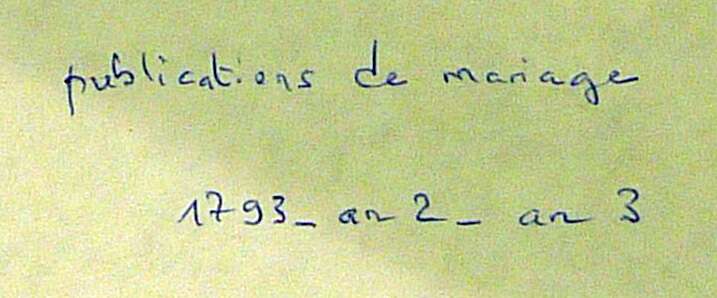 publications de mariage
1793_ an 2_ an 3